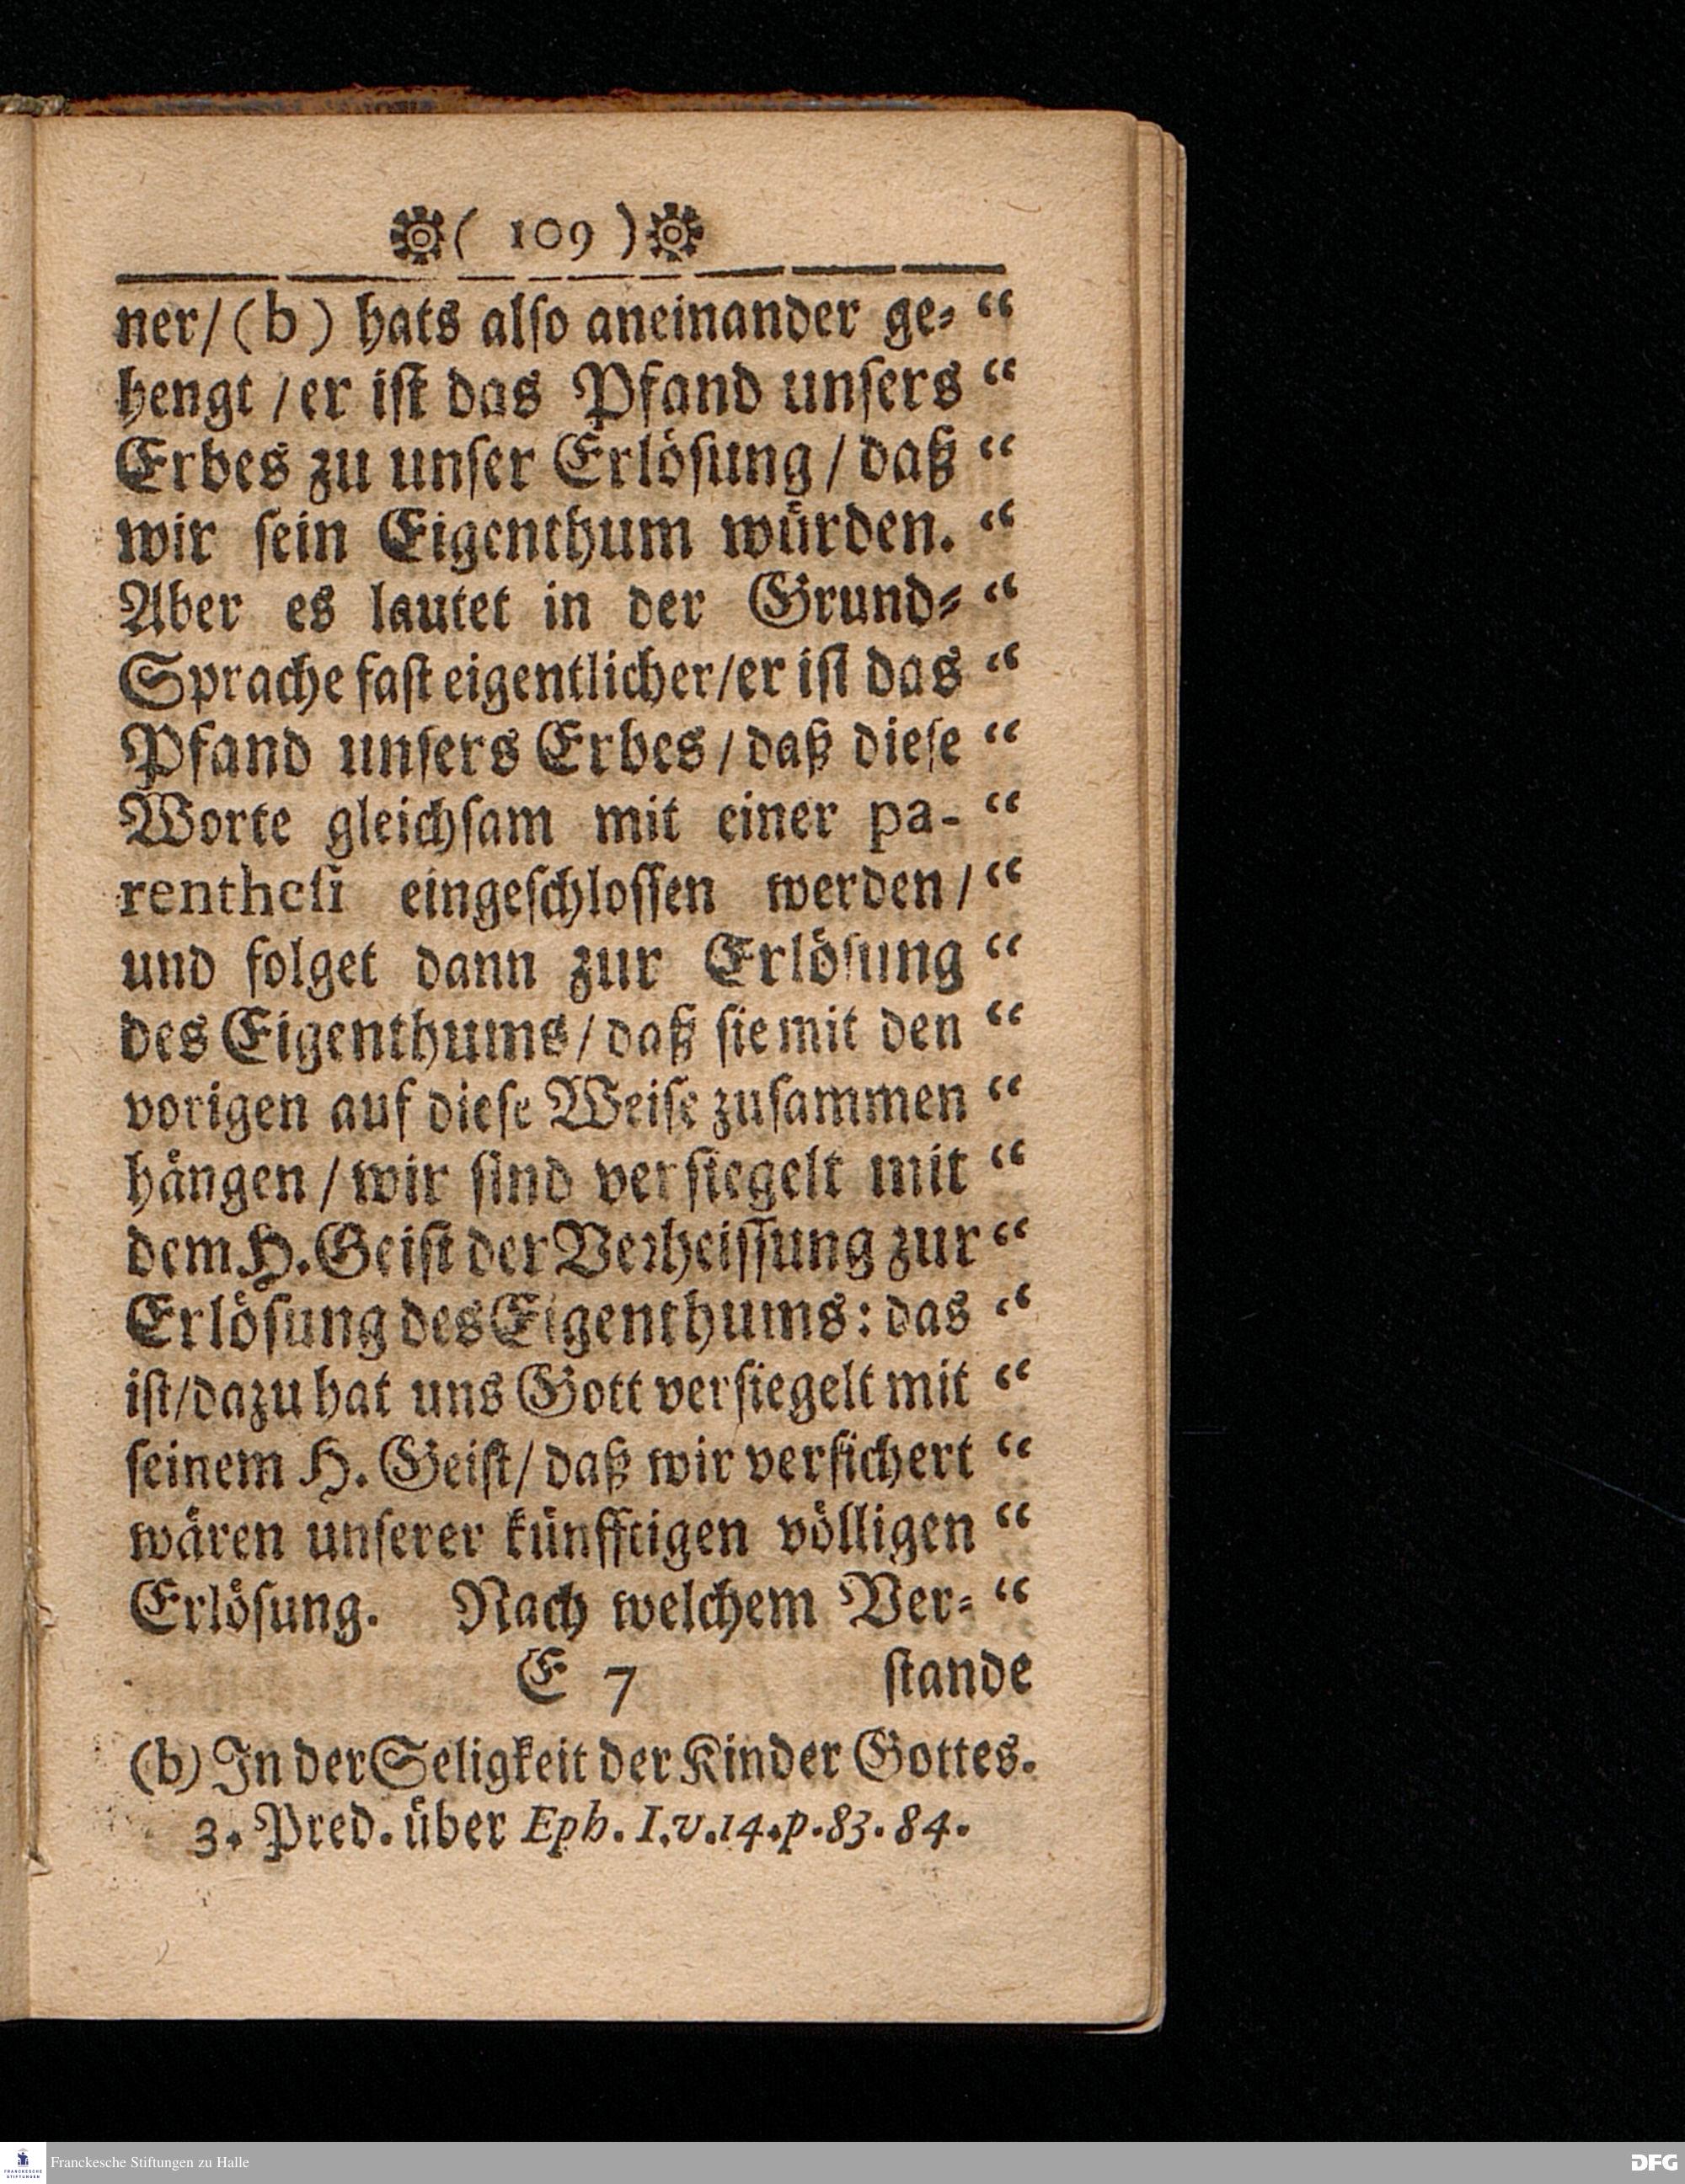 ( 109 )
ner/ (b) hats alſo aneinander ge⸗ “
hengt / er iſt das Pfand unſers “
Erbes zu unſer Erlöſung / daß “
wir ſein Eigenthum würden. “
Aber es lautet in der Grund⸗ “
Sprache faſt eigentlicher/er iſt das “
Pfand unſers Erbes / daß dieſe “
Worte gleichſam mit einer pa- “
rentheſi eingeſchloſſen werden / “
und folget dann zur Erlöſung “
des Eigenthums / daß ſie mit den “
vorigen auf dieſe Weiſe zuſammen “
hängen / wir ſind verſiegelt mit “
dem H. Geiſt der Verheiſſung zur “
Erlöſung des Eigenthums: das “
iſt/dazu hat uns Gott verſiegelt mit “
ſeinem H. Geiſt/ daß wir verſichert “
wären unſerer künfftigen völligen “
Erlöſung. Nach welchem Ver⸗ “
E 7 ſtande
(b) In der Seligkeit der Kinder Gottes.
3. Pred. über Eph. I.v.14.p.83.84.
FRANCKESCHE STIFTUNGEN
Franckesche Stiftungen zu Halle
DFG